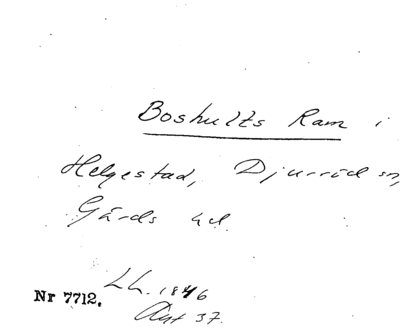 Boshults Ram i
Helgestad, Djurröd sn,
Gärds hd.
Nr 7712.
LL. 1846
Akt 37.